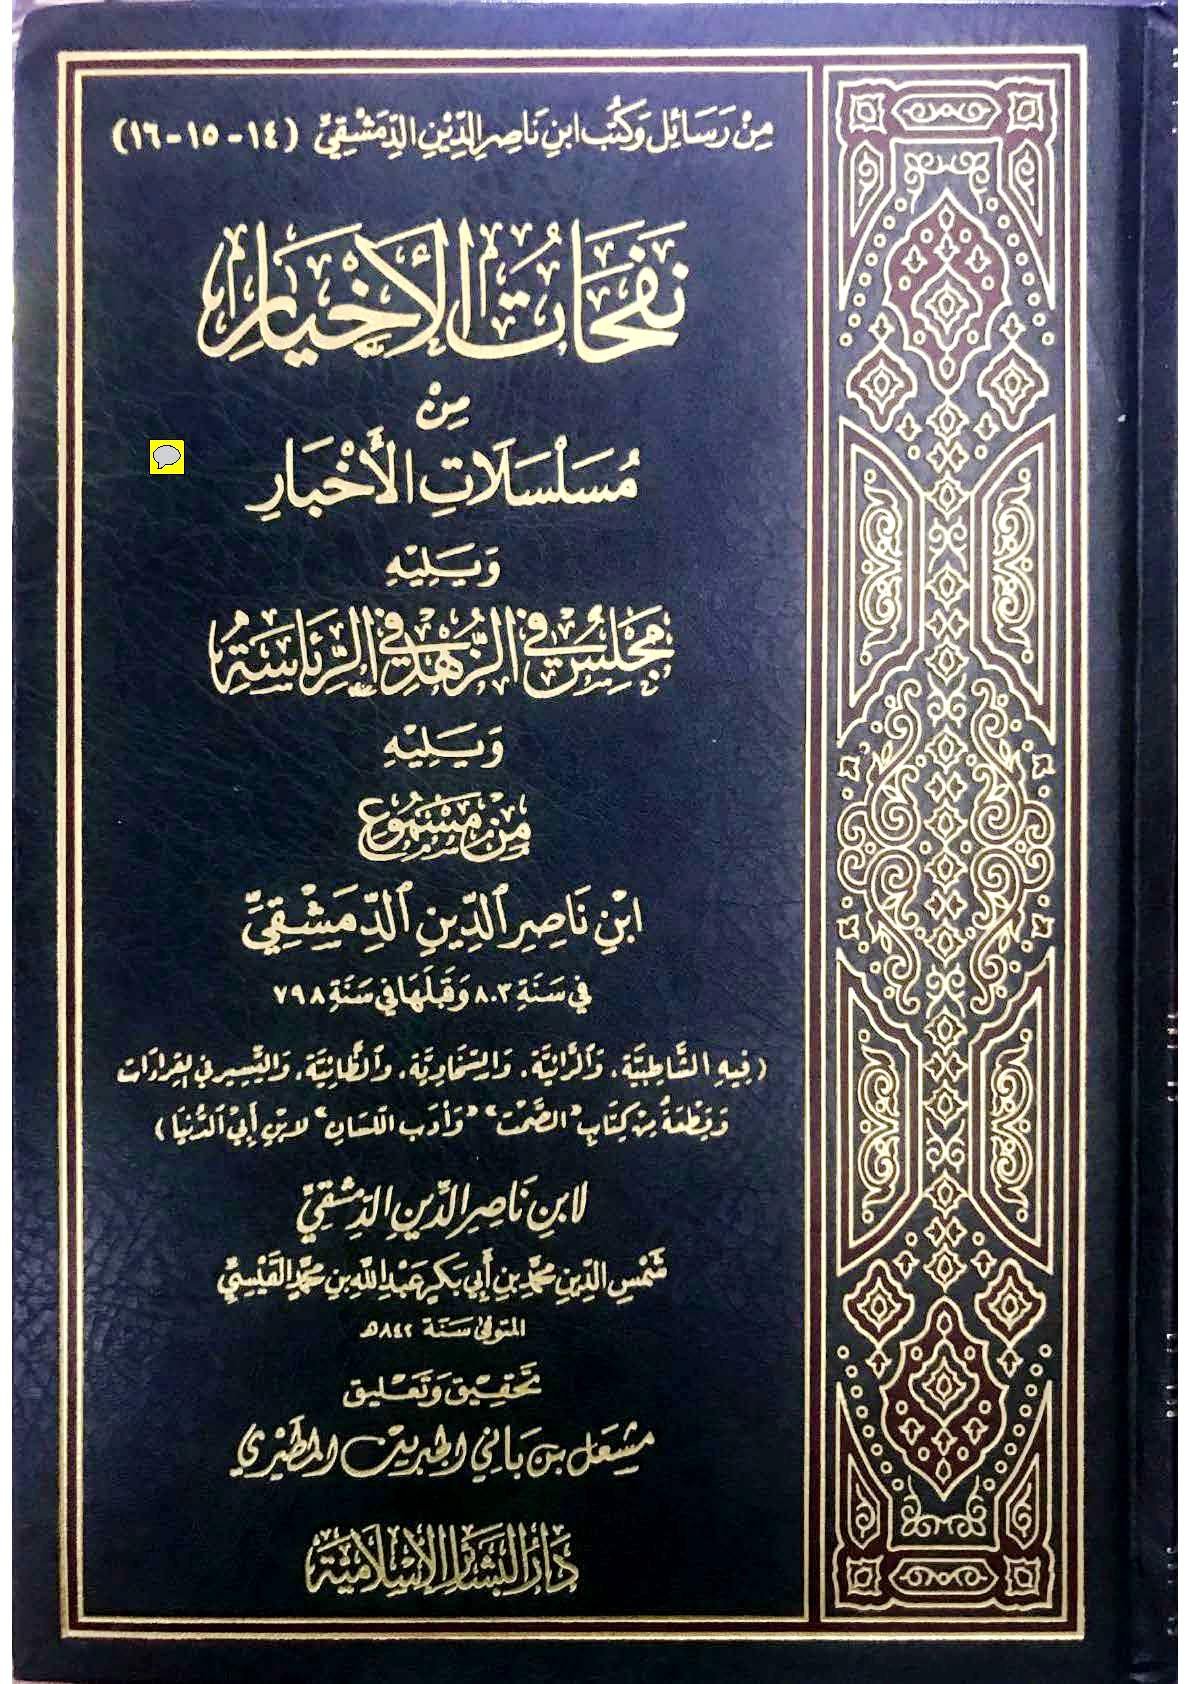 مِنْ رَسَائِل وَكُتُب ابنِ نَاصِرِ الدِّيْنِ الدِّمَشْقِيِّ (١٤-١٥-١٦)
نَفَحَاتُ الأَخْيَارِ
مِنْ
مُسَلْسَلَاتِ الأَخْبَارِ
وَيَلِيْهِ
مَجْلِسٌ فِي الزُّهْدِ فِي الرِّئَاسَةِ
وَيَلِيْهِ
مِنْ مَسْمُوْعِ
ابْنِ نَاصِرِ الدِّينِ الدِّمَشْقِيِّ
فِي سَنَةِ ٨٠٣ وَقَبْلَهَا فِي سَنَةِ ٧٩٨
(فِيهِ الشَّاطِبِيَّة، وَالرَّائِيَّة، وَالسَّخَاوِيَّة، وَالخَاقَانِيَّة، وَالتَّيسِير فِي القِرَاءَات
وَقِطْعَةٌ مِنْ كِتَابِ "الصَّمْت" "وَأَدَب اللِّسَانِ" لِابْنِ أَبِي الدُّنْيَا)
لابنِ نَاصِرِ الدِّينِ الدِّمَشْقِيِّ
شَمْسِ الدِّينِ مُحَمَّدِ بنِ أَبِي بَكْرٍ عَبْدِ اللهِ بنِ مُحَمَّدٍ القَيْسِيِّ
المتوفى سَنَة ٨٤٢هـ
تَحْقِيْق وَتَعْلِيق
مشعل بن بَاني الجبرين المطيري
دَارُ البَشَائِر الإِسْلَامِيَّة